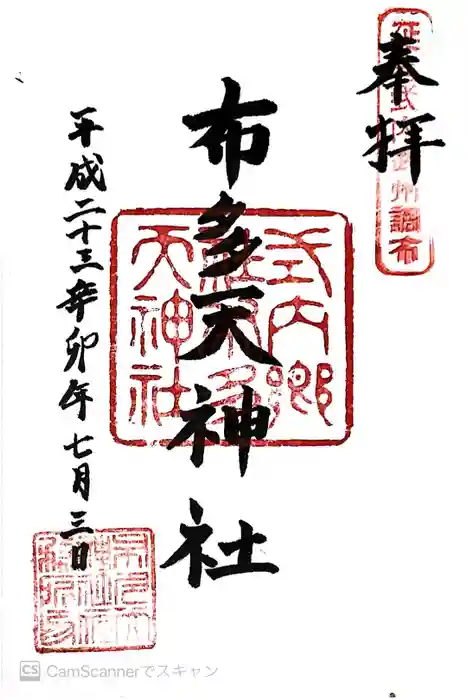 奉拝
布多天神社
平成二十三辛卯年七月三日
式内郷
天神社
調布
CS CamScannerでスキャン